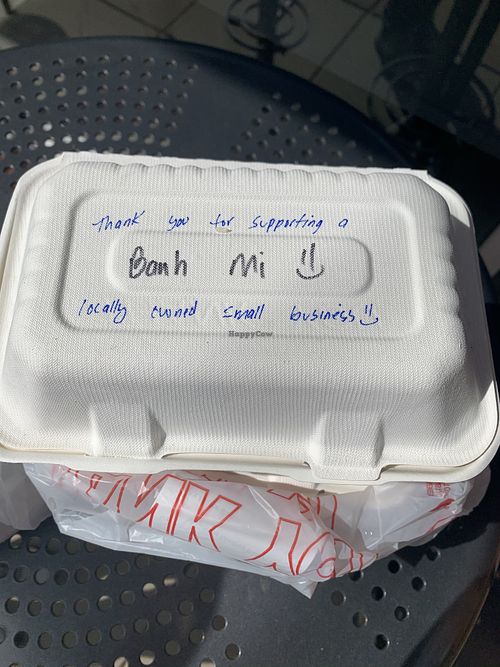 Thank you for supporting a
Banh Mi
locally owned small business
HappyCow